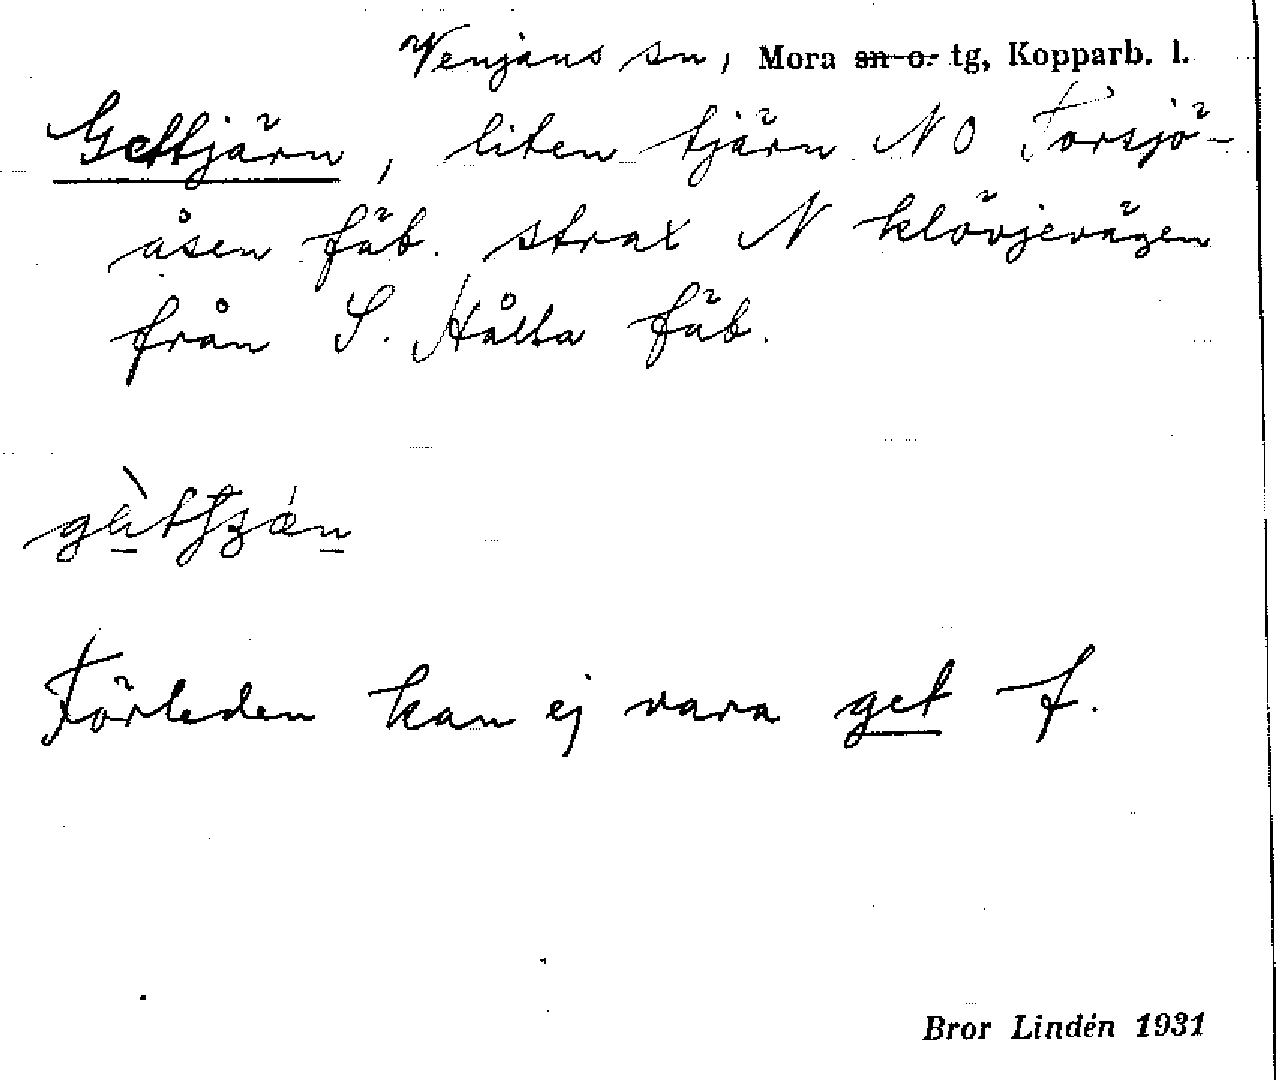 Venjans sn, Mora sn o. tg, Kopparb. l.
Gettjärn, liten tjärn NO Torsjö-
åsen fäb. strax N klövjevägen
från S. Hålla fäb.
Förleden kan ej vara get f.
Bror Lindén 1931